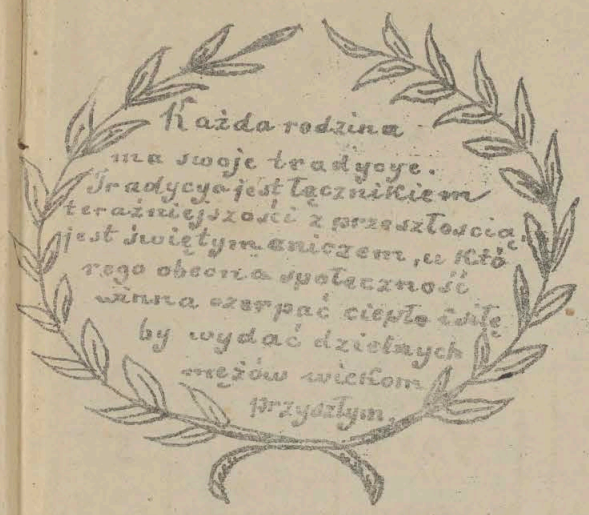 Każda rodzina
ma swoje tradycye.
Tradycya jest łącznikiem
teraźniejszości z przeszłością,
jest świętym zniczem, u któ
rego obecna społeczność
winna czerpać ciepło i siłę
by wydać dzielnych
mężów wiekom
przyszłym.